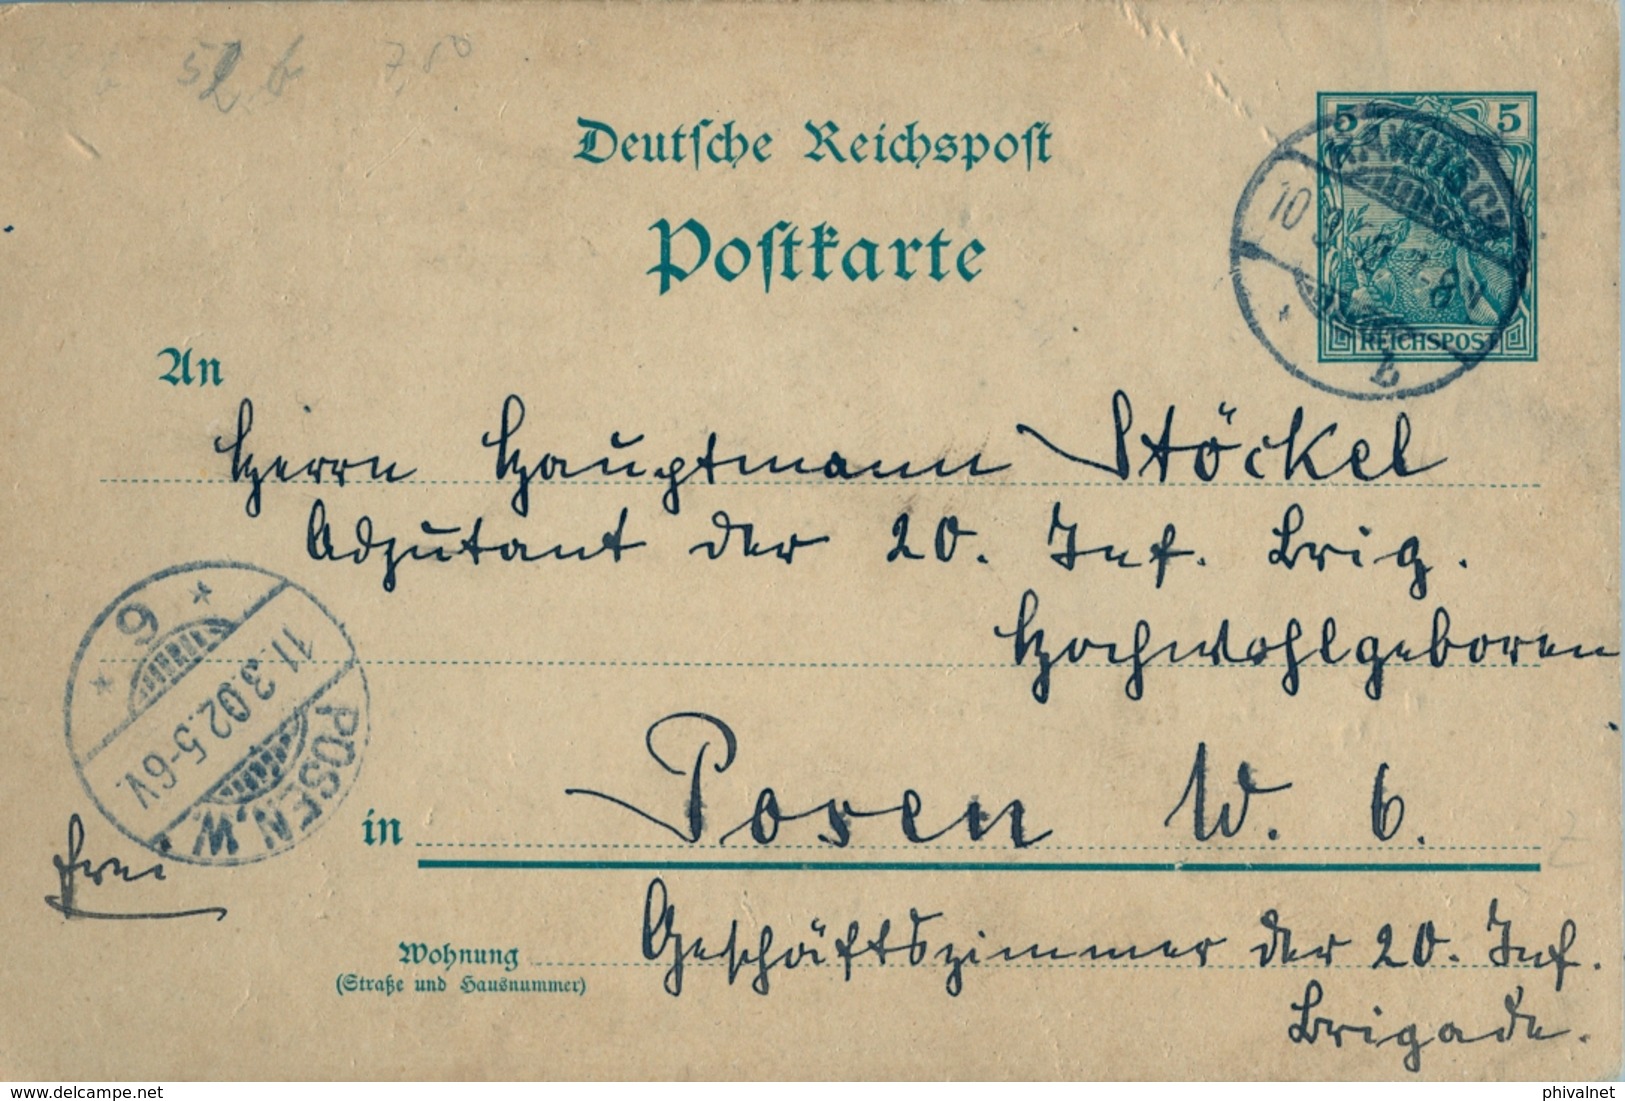 52 b
Deutsche Reichspost
Postkarte
5 5
REICHSPOST
RAWITSCH
An
Herrn Hauptmann Stöckel
Adjutant der 20. Inf. Brig.
Hochwohlgeboren
in Posen W. 6.
6
11.3.02.5-6V.
POSEN.W.
frei
Wohnung Geschäftszimmer der 20. Inf.
(Straße und Hausnummer)
Brigade.
delcampe.net
phivalnet